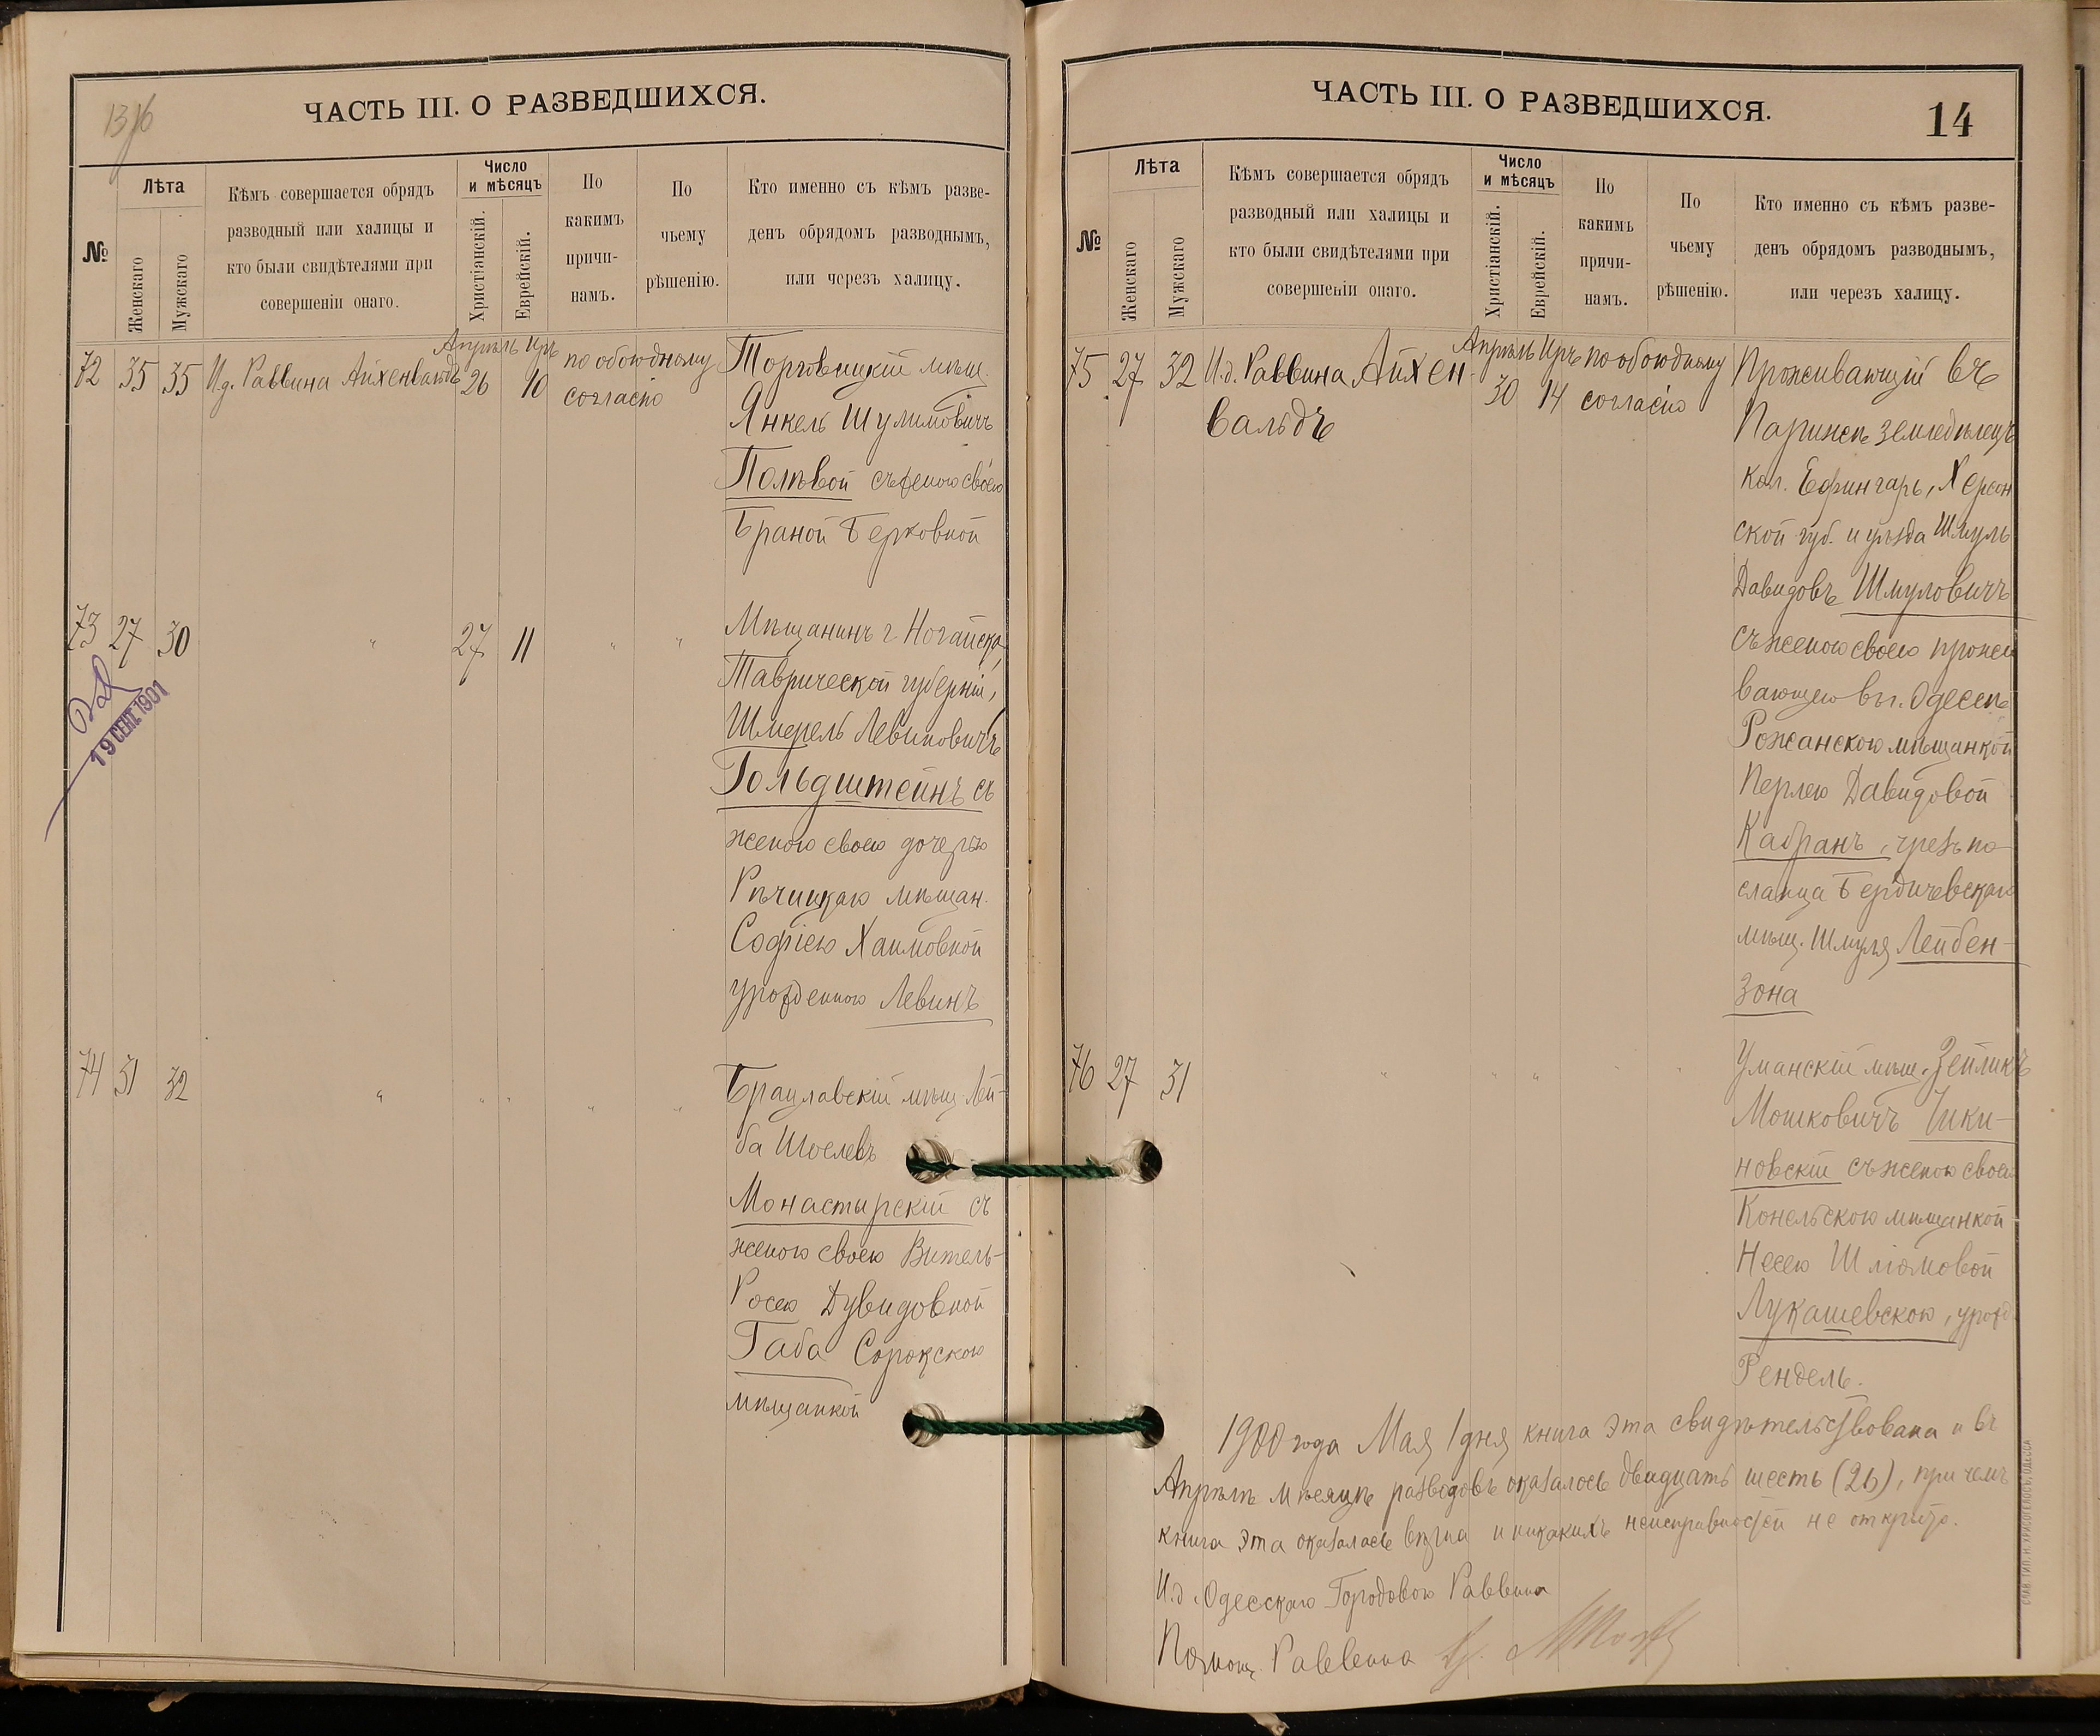 ЧАСТЬ III. О РАЗВЕДШИХСЯ.
№
Лѣта
Женскаго
Мужскаго
Кѣмъ совершается обрядъ
разводный или халицы и
кто были свидѣтелями при
совершеніи онаго.
Число
и мѣсяцъ
Христіанскій.
Еврейскій.
По
какимъ
причи-
намъ.
По
чьему
рѣшенію.
Кто именно съ кѣмъ разве-
денъ обрядомъ разводнымъ,
или черезъ халицу.
72 35 35 И.д. Раввина Айхенвальдъ
Апрѣль Иръ
26 10
по обоюдному
согласію
Торговицкій мѣщ.
Янкель Шулимовичъ
Полѣвой съ женою своею
Браной Берковной
73 27 30 " 27 11 " "
Мѣщанинъ г. Ногайска,
Таврической губерніи,
Шмерель Левиковичъ
Гольдштейнъ съ
женою своею дочерью
Рѣчицкаго мѣщан.
Софіею Хаимовной
урожденною Левинъ
19 СЕНТ. 1901
74 31 32 " " " " "
Брацлавскій мѣщ. Лей-
ба Шоелевъ
Монастырскій съ
женою своею Витель-
Росею Дувидовной
Габа Сорокскою
мѣщанкой
ЧАСТЬ III. О РАЗВЕДШИХСЯ.
14
№
Лѣта
Женскаго
Мужскаго
Кѣмъ совершается обрядъ
разводный или халицы и
кто были свидѣтелями при
совершеніи онаго.
Число
и мѣсяцъ
Христіанскій.
Еврейскій.
По
какимъ
причи-
намъ.
По
чьему
рѣшенію.
Кто именно съ кѣмъ разве-
денъ обрядомъ разводнымъ,
или черезъ халицу.
75 27 32 И.д. Раввина Айхен-
вальдъ
Апрѣль Иръ
30 14
по обоюдному
согласію
Проживающій въ
Парижѣ земледѣлецъ
кол. Ефингаръ, Херсон
ской губ. и уѣзда Шмуль
Давидовъ Шмуловичъ
съ женою своею прожи
вающею въ г. Одессѣ
Рожанскою мѣщанкой
Перлею Давидовой
Кабранъ, чрезъ по-
сланца Бердичевскаго
мѣщ. Шмуля Лейбен-
зона
76 27 31 " " " " "
Уманскій мѣщ. Зейликъ
Мошковичъ Чики-
новскій съ женою своею
Конельскою мѣщанкой
Несею Шліомовой
Лукашевскою, урожд.
Рендель.
1900 года Мая 1 дня книга эта свидѣтельствована и въ
Апрѣлѣ мѣсяцѣ разводовъ оказалось двадцать шесть (26), при чемъ
книга эта оказалась вѣрна и никакихъ неисправностей не открыто.
И.д. Одесскаго Городового Раввина
Помощ. Раввина
СЛАВ. ТИП. Н. ХРИСОГЕЛОСЪ, ОДЕССА